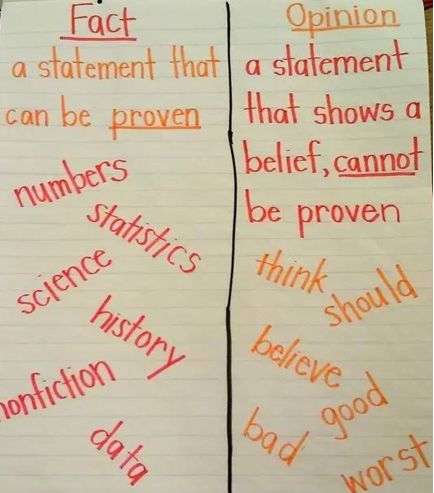 Fact
a statement that
can be proven
numbers
statistics
science
history
nonfiction
data
Opinion
a statement
that shows a
belief, cannot
be proven
think
should
believe
good
bad
worst